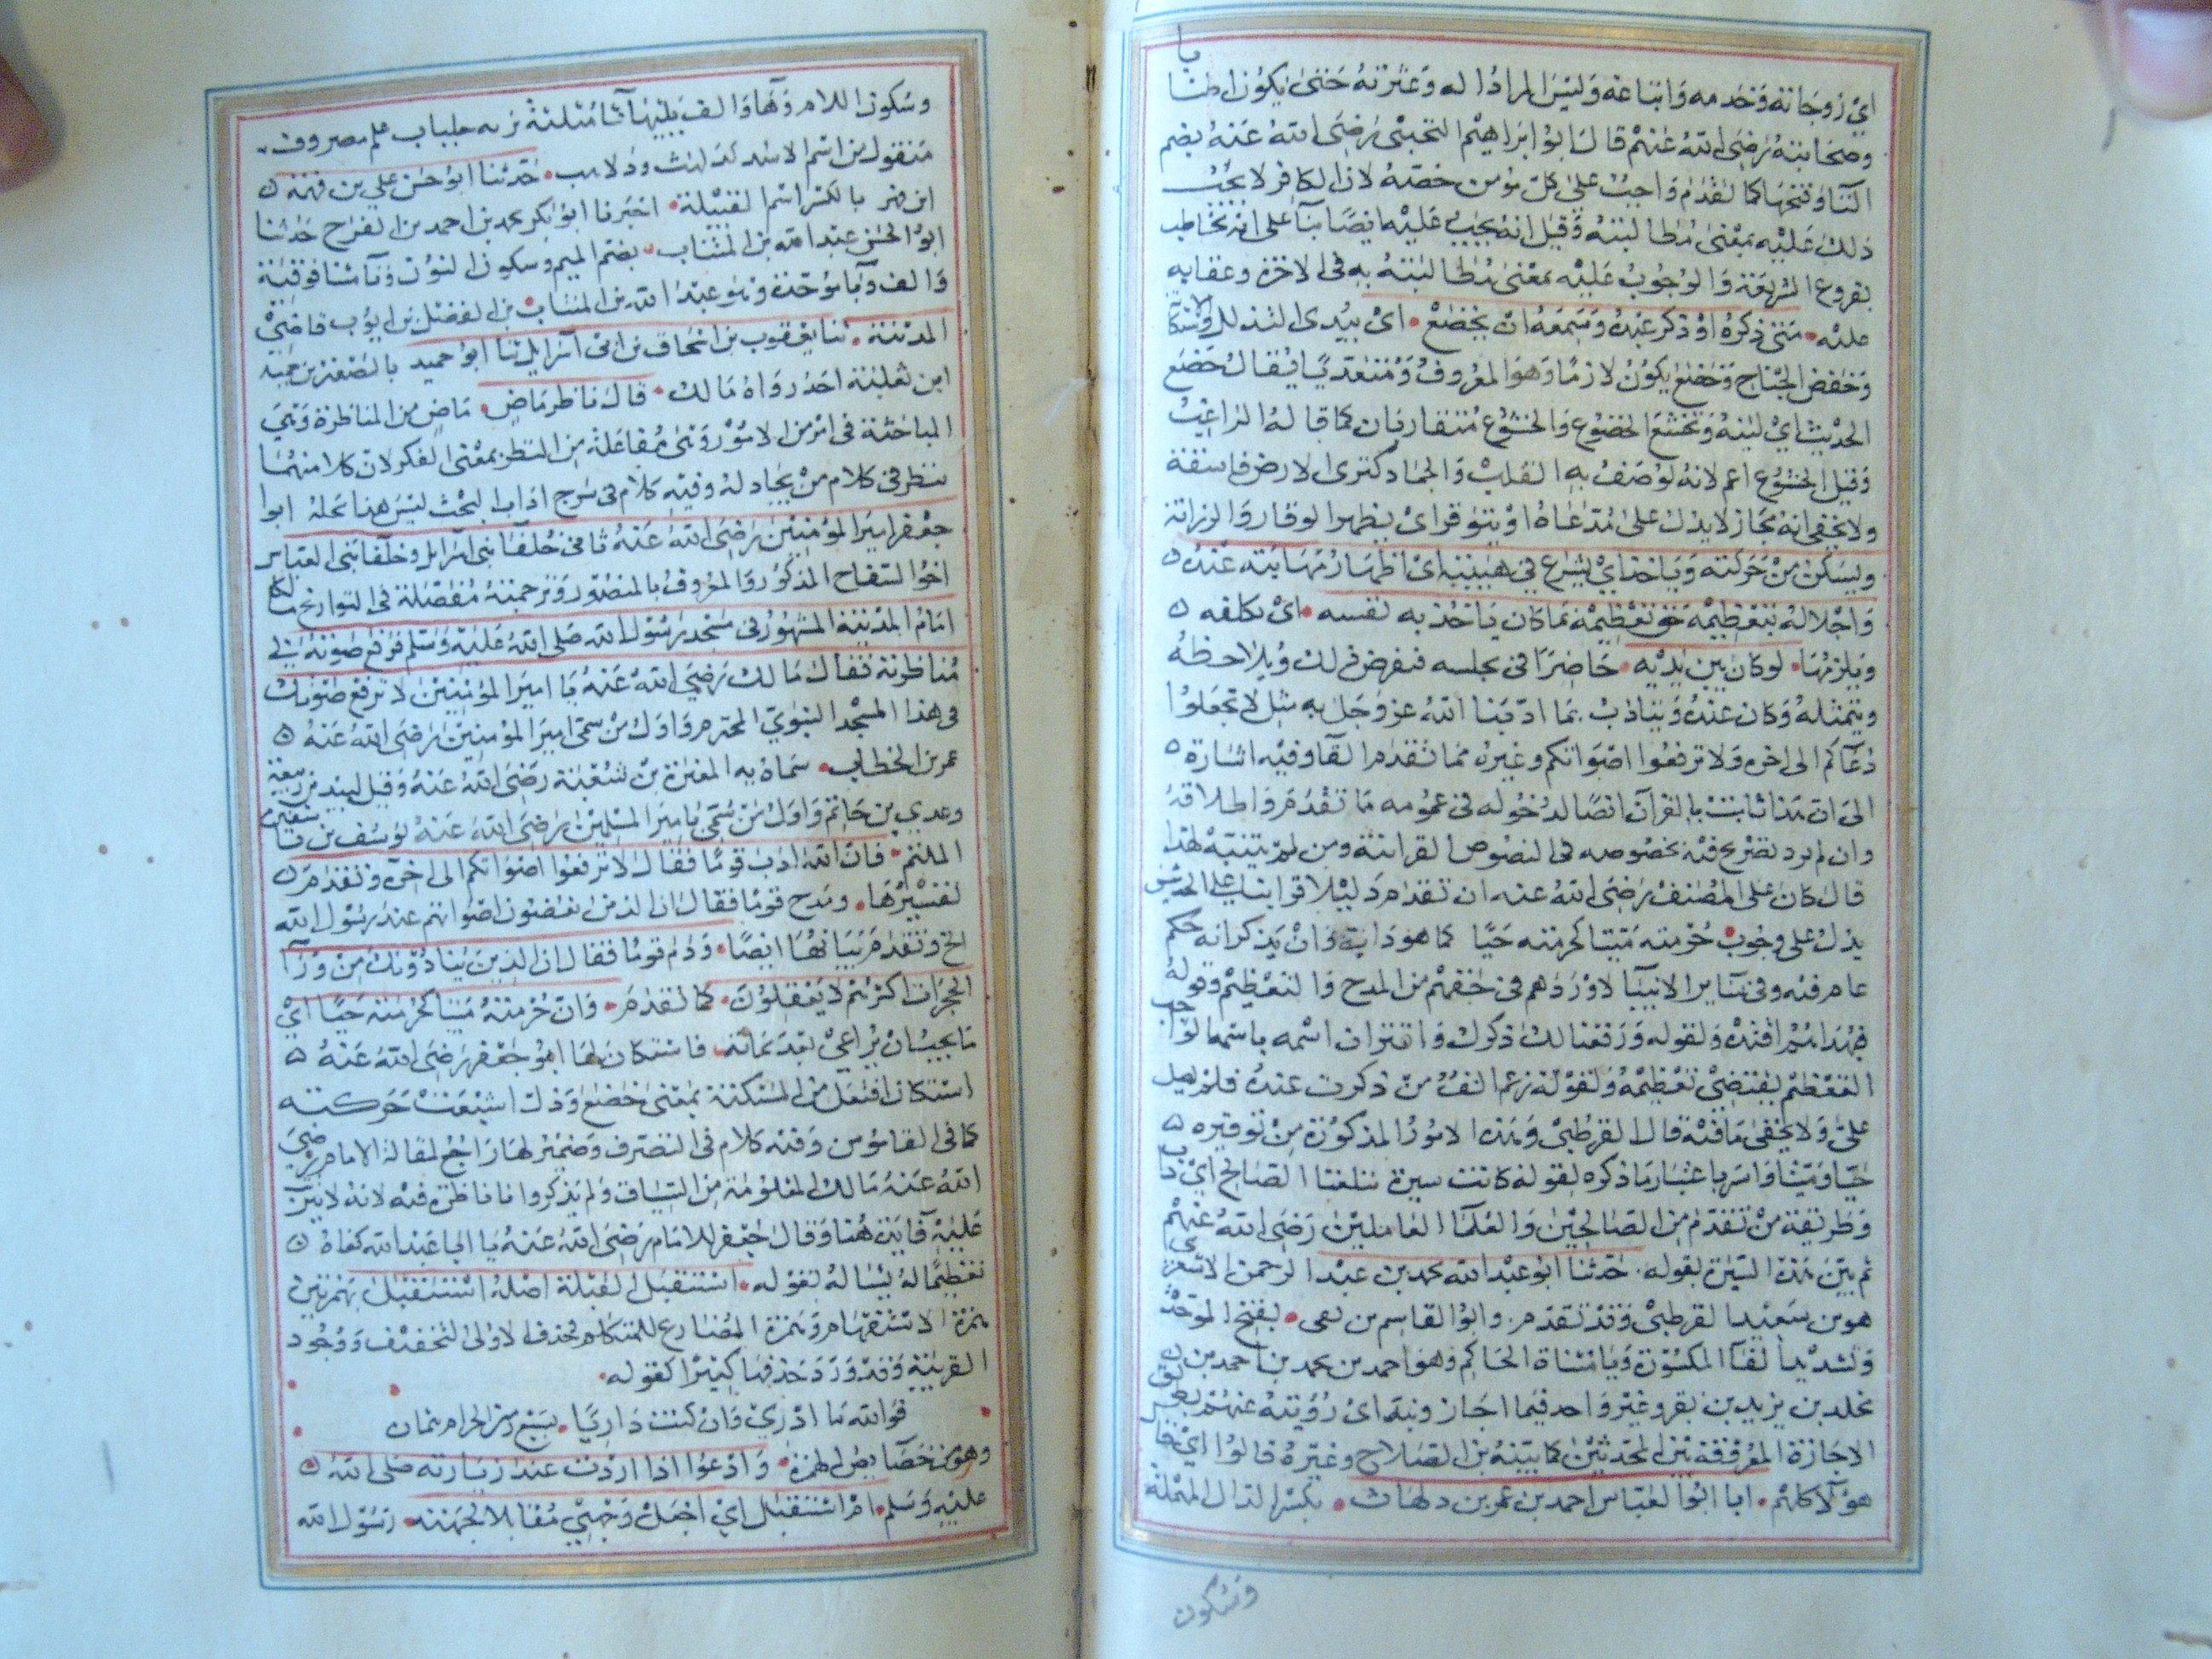 اي زوجاته وخدمه واتباعه وليس المراد اله وعترته حتى يكون
وصحابته رضي الله عنهم قال ابو ابراهيم التجيبي رضي الله عنه بضم
التا وفتحها كما تقدم واجب على كل مؤمن خصه لان الكافر لا يجب
ذلك عليه بمعنى مطالبته وقيل انه يجب عليه ايضا بنا على انه مخاطب
بفروع الشريعة والوجوب عليه بمعنى مطالبته به في الاخرة وعقابه
عليه متى ذكره او ذكر عنده وسمعه ان يخضع اي يبدي التذلل
وخفض الجناح وخضع يكون لازما وهو المعروف ومتعديا فيقال خضع
الحديث اي لينه ويخشع الخضوع والخشوع متقاربان كما قاله الراغب
وقيل الخشوع اعم لانه يوصف به القلب والجماد كترى الارض خاشعة
ولا يخفى انه مجاز لا يدل على مدعاه او يتوقر اي يظهر الوقار والرزانة
ويسكن من حركته وياخذ اي يشرع في هيبته اي اظهار مهابته عنده
واجلاله بتعظيمه حق تعظيمه بما كان ياخذ به نفسه اي يكلفه
ويلزمها لو كان بين يديه حاضرا في مجلسه فيفرض ذلك ويلاحظه
ويتمثله وكان عنده ويتادب بما ادبنا الله عز وجل به مثل لا تجعلوا
دعاكم الى اخره ولا ترفعوا اصواتكم وغيره مما تقدم القا وفيه اشارة
الى ان هذا ثابت بالقران ايضا لدخوله في عمومه ما تقدم واطلاقه
وان لم يرد تصريح فيه بخصوصه في النصوص القرانية ومن لم يتنبه لهذا
قال كان على المصنف رضي الله عنه ان تقدم دليلا قرانيا على الحديث
يدل على وجوب حرمته ميتا كحرمته حيا كما هو دابه وان يذكر انه حكم
عام فيه وفي ساير الانبيا لاوردهم في حقهم من المدح والتعظيم وقوله
فبهداهم اقتده ولقوله ورفعنا لك ذكرك واقتران اسمه باسمه الواجب
التعظيم يقتضي تعظيمه ولقوله رغم انف من ذكرت عنده فلم يصل
علي ولا يخفى ما فيه قال القرطبي وهذه الامور المذكورة من توقيره
حيا وميتا واسرها باعتبار ما ذكره لقوله كانت سيرة سلفنا الصالح اي
وطريقة من تقدم من الصالحين والعلما العاملين رضي الله عنهم
ثم بين هذه السيرة بقوله حدثنا ابو عبد الله محمد بن عبد الرحمن الاشعري
هو بن سعيد القرطبي وقد تقدم وابو القاسم بن بقي بفتح الموحدة
وتشديد القاف المكسورة ويا مثناة الحاكم وهو احمد بن محمد بن احمد بن
مخلد بن يزيد بن بقي وغير واحد فيما اجازونيه اي رؤيته عنهم بطريق
الاجازة المعروفة بين المحدثين كما بينه بن الصلاح وغيره قالوا اي قال
هؤلاء كلهم انا ابو العباس احمد بن عمر بن دلهاث بكسر الدال المهملة
وسكون
وسكون اللام وهاء والف يليها ثا مثلثة بزنه جلباب علم مصروف
منقول من اسم الاسد حدثنا ابو حسن علي بن فهر
ابن فهر بالكسر اسم القبيلة اخبرنا ابو بكر محمد بن احمد بن الفرج حدثنا
ابو الحسن عبد الله بن المنتاب بضم الميم وسكون النون وتا مثناة فوقية
والف وبا موحدة وهو عبد الله بن المنتاب بن الفضل بن ايوب قاضي
المدينة ثنا يعقوب بن اسحاق بن ابي اسرايل ثنا ابو حميد بالتصغير بن حميد
ابن ثعلبة احد رواة مالك قال ناظر ماض ماض من المناظرة وهي
المباحثة في امر من الامور وهي مفاعلة من النظر بمعنى الفكر لان كلا منهما
ينظر في كلام من يجادله وفيه كلام في شرح اداب البحث ليس هذا محله ابو
جعفر امير المؤمنين رضي الله عنه ثاني خلفا بني اسرايل وخلفا بني العباس
اخو السفاح المذكور والمعروف بالمنصور وترجمته مفصلة في التواريخ مالكا
امام المدينة المشهور في مسجد رسول الله صلى الله عليه وسلم فرفع صوته في
مناظرته فقال مالك رضي الله عنه يا امير المؤمنين لا ترفع صوتك
في هذا المسجد النبوي المحترم واول من سمى امير المؤمنين رضي الله عنه
عمر بن الخطاب سماه به المغيرة بن شعبة رضي الله عنه وقيل لبيد بن ربيعة
وعدي بن حاتم واول من سمى بامير المسلمين رضي الله عنه يوسف بن تاشفين
الملثم فان الله ادب قوما فقال لا ترفعوا اصواتكم الى اخره وتقدم
تفسيرها ومدح قوما فقال ان الذين يغضون اصواتهم عند رسول الله
الخ وتقدم بيانها ايضا وذم قوما فقال ان الذين ينادونك من ورآ
الحجرات اكثرهم لا يعقلون كما تقدم وان حرمته ميتا كحرمته حيا اي
ما يجب ان يراعى بعد مماته فاستكان لها ابو جعفر رضي الله عنه
استكان افتعل من المسكنة بمعنى خضع وذل اشبعت حركته
كما في القاموس وفيه كلام في التصرف وضمير لها راجع لمقالة الامام رضي
الله عنه مالك المعلومة من السياق ولم يذكروا ما ناظره فيه لانه لا يترتب
عليه فايدة هنا وقال جعفر للامام رضي الله عنه يا ابا عبد الله كناه
تعظيما له يساله بقوله استقبل القبلة اصله ااستقبل بهمزتين
همزة الاستفهام وهمزة المضارع للمتكلم فحذف الاولى للتخفيف ووجود
القرينة وقد ورد حذفها كثيرا كقوله
فوالله ما ادري وان كنت داريا بسبع رمين الجمر ام بثمان
وهو من خصايص الهمزة وادعوا اذا اردت عند زيارته صلى الله
عليه وسلم ام استقبل اي اجعل وجهي مقابلا لجهته رسول الله